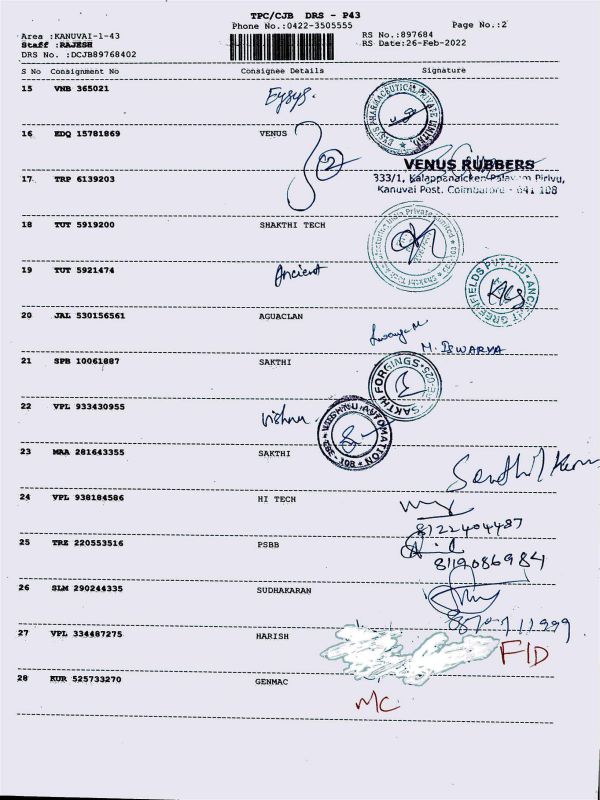 TPC/CJB DRS - P43
Phone No.:0422-3505555
Page No.:2
Area :KANUVAI-1-43
Staff :RAJESH
DRS No. :DCJB89768402
RS No.:897684
RS Date:26-Feb-2022
S No Consignment No Consignee Details Signature
15 VNB 365021 Eysys.
EYSYS PHARMACEUTICAL PRIVATE LIMITED
16 EDQ 15781869 VENUS
VENUS RUBBERS
333/1, Kalappanaicken Palayam Pirivu,
Kanuvai Post. Coimbatore - 641 108
17 TRP 6139203
18 TUT 5919200 SHAKTHI TECH
19 TUT 5921474 Ancient
ANCIENT GREENFIELDS PVT LTD
20 JAL 530156561 AGUACLAN
M. ISWARYA
21 SPB 10061887 SAKTHI
SAKTHI FORGINGS
22 VPL 933430955 Vishnu
VISHNU AUTOMATION
23 MAA 281643355 SAKTHI
24 VPL 938184586 HI TECH
8122404487
25 TRZ 220553516 PSBB
8119086984
26 SLM 290244335 SUDHAKARAN
27 VPL 334487275 HARISH FID
28 KUR 525733270 GENMAC
MC